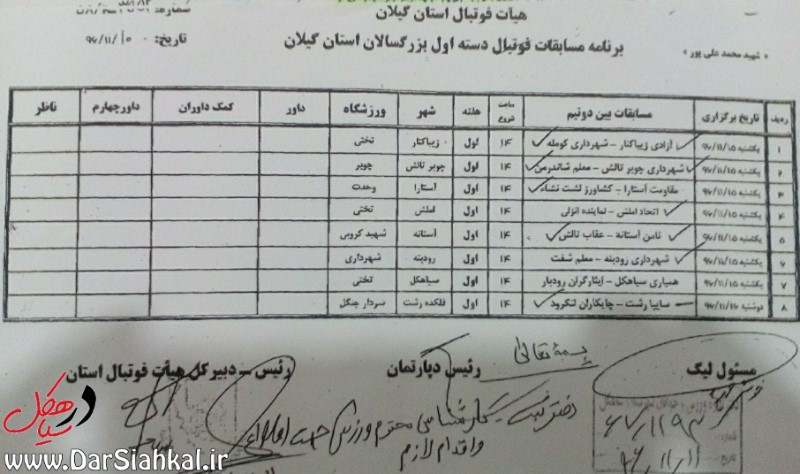 هیأت فوتبال استان گیلان
برنامه مسابقات فوتبال دسته اول بزرگسالان استان گیلان
« شهید محمد علی پور »
تاریخ: ۹۶/۱۱/۱۰
ردیف تاریخ برگزاری مسابقات بین دوتیم ساعت شروع هفته شهر ورزشگاه داور کمک داوران داورچهارم ناظر
۱ یکشنبه ۹۶/۱۱/۱۵ آزادی زیباکنار – شهرداری کومله ۱۴ اول زیباکنار تختی
۲ یکشنبه ۹۶/۱۱/۱۵ شهرداری چوبر تالش – معلم شاندرمن ۱۴ اول چوبر تالش چوبر
۳ یکشنبه ۹۶/۱۱/۱۵ مقاومت آستارا – کشاورز لشت نشاء ۱۴ اول آستارا وحدت
۴ یکشنبه ۹۶/۱۱/۱۵ اتحاد املش – نماینده انزلی ۱۴ اول املش تختی
۵ یکشنبه ۹۶/۱۱/۱۵ ثامن آستانه – عقاب تالش ۱۴ اول آستانه شهید کروبی
۶ یکشنبه ۹۶/۱۱/۱۵ شهرداری رودبنه – معلم شفت ۱۴ اول رودبنه شهرداری
۷ یکشنبه ۹۶/۱۱/۱۵ همیاری سیاهکل – ایثارگران رودبار ۱۴ اول سیاهکل تختی
۸ دوشنبه ۹۶/۱۱/۱۶ سایپا رشت – چایکاران لنگرود ۱۴ اول فلکده رشت سردار جنگل
بسمه تعالی
مسئول لیگ رئیس دپارتمان رئیس – دبیر کل هیأت فوتبال استان
دفتر ثبت کارشناسی محترم ورزش جهت اطلاع
و اقدام لازم
در سیاهکل
www.DarSiahkal.ir